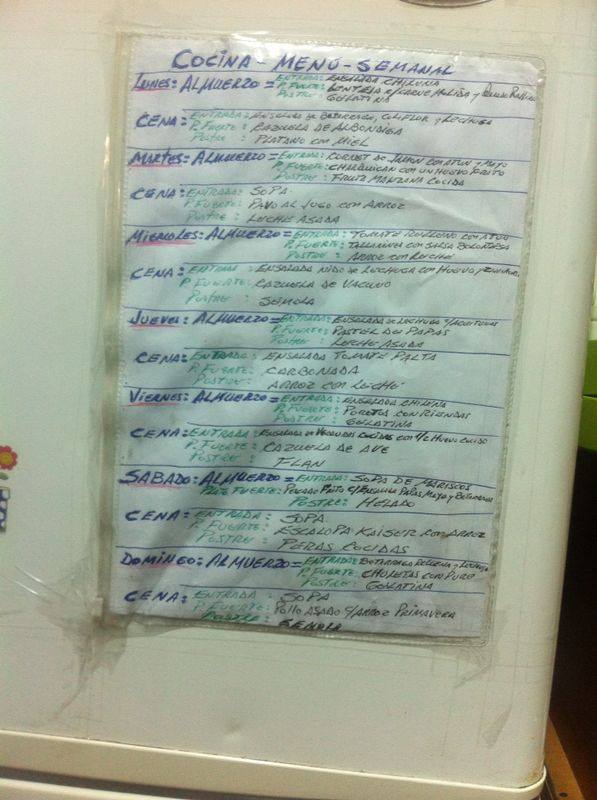 COCINA - MENÚ - SEMANAL
LUNES: ALMUERZO = ENTRADA: ENSALADA CHILENA
P. FUERTE: LENTEJA C/CARNE MOLIDA y
POSTRE: GELATINA
CENA: ENTRADA: ENSALADA DE BETERRAGA, COLIFLOR y LECHUGA
P. FUERTE: CAZUELA DE ALBONDIGA
POSTRE: PLATANO CON MIEL
MARTES: ALMUERZO = ENTRADA: CORNET DE JAMON CON ATUN y MAYO
P. FUERTE: CHARQUICAN CON UN HUEVO FRITO
POSTRE: FRUTA MANZANA COCIDA
CENA: ENTRADA: SOPA
P. FUERTE: PAVO AL JUGO CON ARROZ
POSTRE: LECHE ASADA
MIERCOLES: ALMUERZO = ENTRADA: TOMATE RELLENO CON ATUN
P. FUERTE: TALLARINES CON SALSA BOLOÑESA
POSTRE: ARROZ CON LECHE
CENA: ENTRADA: ENSALADA NIDO DE LECHUGA CON HUEVO y
P. FUERTE: CAZUELA DE VACUNO
POSTRE: SEMOLA
JUEVES: ALMUERZO = ENTRADA: ENSALADA DE LECHUGA C/ACEITUNAS
P. FUERTE: PASTEL DE PAPAS
POSTRE: LECHE ASADA
CENA: ENTRADA: ENSALADA TOMATE PALTA
P. FUERTE: CARBONADA
POSTRE: ARROZ CON LECHE
VIERNES: ALMUERZO = ENTRADA: ENSALADA CHILENA
P. FUERTE: POROTOS CON RIENDAS
POSTRE: GELATINA
CENA: ENTRADA: ENSALADA DE VERDURAS COCIDAS CON 1/2 HUEVO COCIDO
P. FUERTE: CAZUELA DE AVE
POSTRE: FLAN
SABADO: ALMUERZO = ENTRADA: SOPA DE MARISCOS
FUERTE: PESCADO FRITO C/ENSALADA PAPAS MAYO y BETERRAGA
POSTRE: HELADO
CENA: ENTRADA: SOPA
P. FUERTE: ESCALOPA KAISER CON ARROZ
POSTRE: PERAS COCIDAS
DOMINGO: ALMUERZO = ENTRADA: BETARRAGA RELLENA y LECHUGA
P. FUERTE: CHULETAS CON PURE
POSTRE: GELATINA
CENA: ENTRADA: SOPA
P. FUERTE: POLLO ASADO C/ARROZ PRIMAVERA
POSTRE: SEMOLA